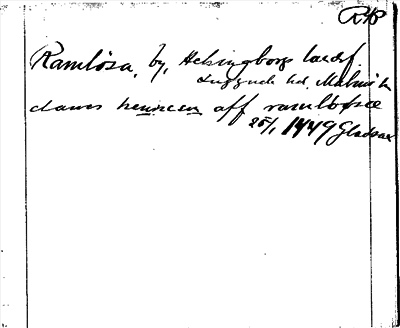 RAP
Ramlösa, by, Helsingborgs landsf.
Luggude hd, Malmöh. l.
clawes henneczen aff ramløsæ
25/1 1449 Gladsax